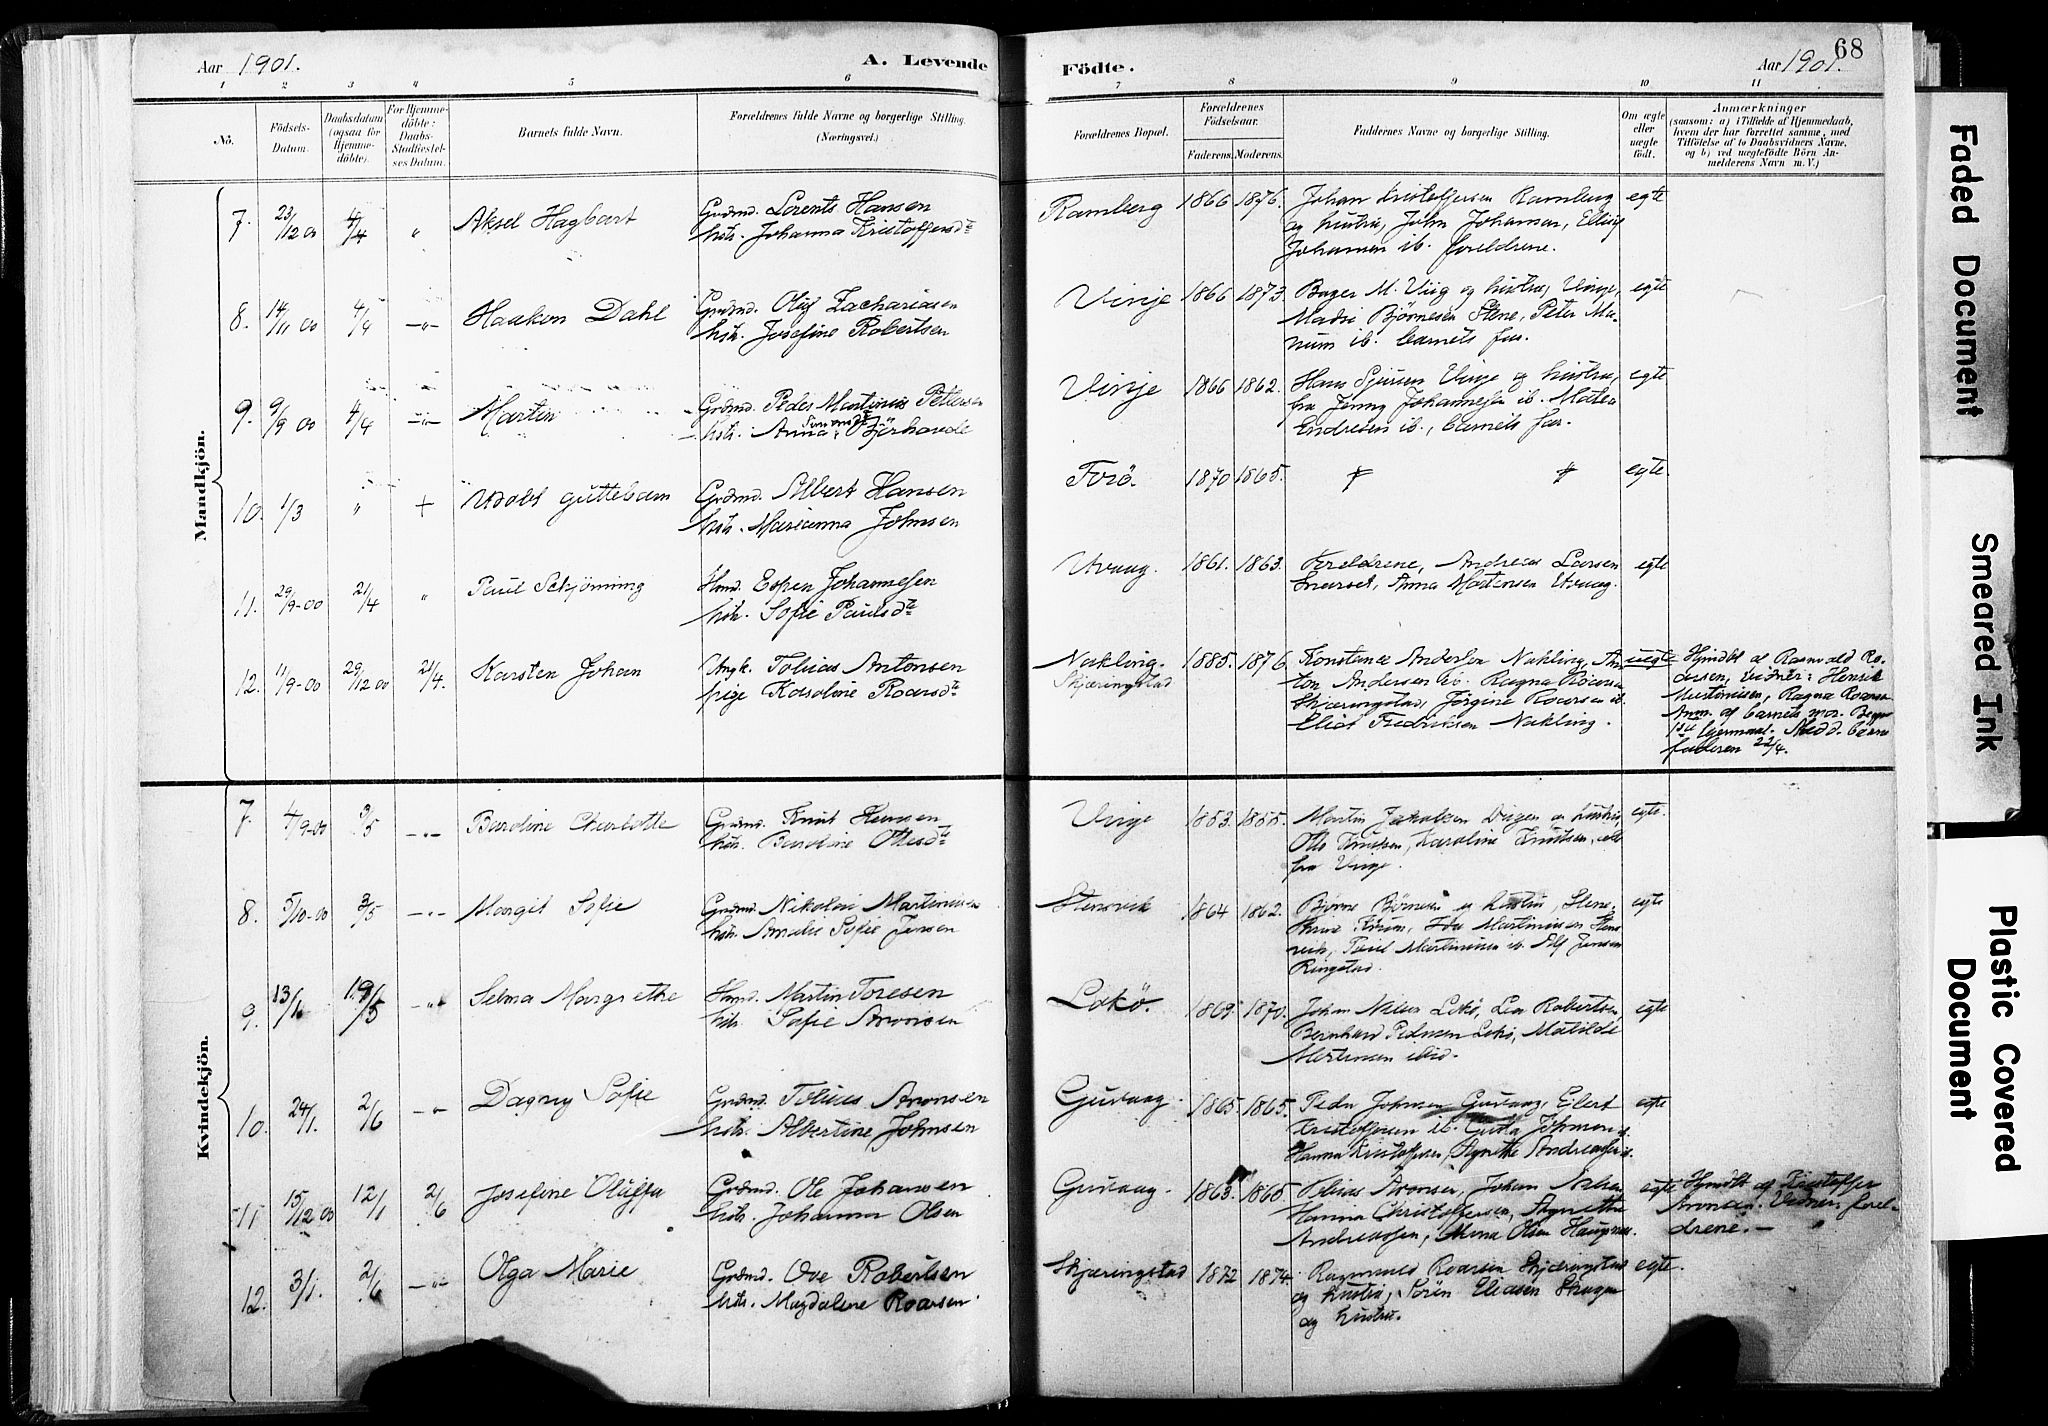 Aar 1901.
A. Levende
Födte.
Aar 1901.
68
1 2 3 4 5 6 7 8 9 10 11
Nö.
Födsels-
Datum.
Daabsdatum
(ogsaa for
Hjemme-
döbte).
For Hjemme-
döbte:
Daabs-
Stadfæstel-
ses Datum.
Barnets fulde Navn.
Forældrenes fulde Navne og borgerlige Stilling.
(Næringsvei.)
Forældrenes Bopæl.
Forældrenes
Födselsaar.
Faderens. Moderens.
Faddernes Navne og borgerlige Stilling.
Om ægte
eller
uægte
födt.
Anmærkninger
(saasom: a) i Tilfælde af Hjemmedaab,
hvem der har forrettet samme, med
Tilföielse af to Daabsvidners Navne,
og b) ved uægtefödte Börn An-
melderens Navn m. V.)
Mandkjön.
7. 23/12 00 4/4 " Aksel Hagbart
Grdmd. Lorents Hansen
hstr. Johanna Kristoffersdt
Ramberg 1866 1876.
Johan Kristoffersen Ramberg
og hustru, John Johansen, Elling
Johansen ib. foreldrene.
egte
8. 14/11 00 4/4 -"- Haakon Dahl
Grdmd. Oluf Zachariasen
hstr. Josefine Robertsen
Vinje 1866 1873.
og hustru, Vinje,
Bjørnesen Stene, Peter
ib. barnets far.
egte
9. 9/9 00 4/4 -"- Martin
Grdmd. Peder Martinus Petersen
hstr. Anna Bjørhovde
Vinje 1866 1862.
Hans Vinje og hustru,
Johannesen ib.
Endresen ib., barnets far.
egte
10. 1/3 " + Udøbt guttebarn
Grdmd. Albert Hansen
hstr. Marianna Johnsen
Forø. 1870 1865.
egte.
11. 29/9-00 21/4 " Paul Schjønning
Hmd. Espen Johannesen
hstr. Sofie Paulsdt
Uvaag. 1861. 1863.
Foreldrene, Andreas Larsen
Anna Mortensen Uvaag.
egte
12. 11/9-00 29/12 00 21/4. Karsten Johan
Ungk. Tobias Antonsen
pige Karoline Roarsdt
Nakling.
Skjæringstad
1885. 1876.
Konstanse Andersen Nakling, An-
ton Andersen ib. Ragna Roarsen
Skjæringstad, Jørgine Roarsen ib.
Elias Fredriksen Nakling.
uegte
Hjmdbt af Ragnvald Ro-
arsen, vidner: Henrik
Ragna Roarsen
Anm. af barnets mor.
Medd. barne
faderen 22/4.
Kvindekjön.
7. 4/9-00 3/5 -"- Bardine Charlotte
Grdmd. Knut Hansen
hstr. Bardine Ottesdt
Vinje 1853. 1855.
Martin Jakobsen og hustru,
Otto Knutsen, Karoline Knutsen, alle
fra Vinje.
egte.
8. 5/10-00 3/5 -"- Margit Sofie
Grdmd. Nikolai Martinussen
hstr. Amalie Sofie Jensen
Stensvik 1864 1862.
Bjørne Bjørnsen og hustru, Stene,
Ida Martinussen Stens-
vik, Paul Martinussen ib. Alf Jensen
Ringstad.
egte
9. 13/1. 19/5 -"- Selma Margrethe
Hmd. Martin Toresen
hstr. Sofie Aronsen
Lokø. 1869 1870.
Johan Nilsen Lokø, Lea Robertsen,
Bernhard Pedersen Lokø, Matilde
Mortensen ibid.
egte
10. 24/1. 2/6 -"- Dagny Sofie
Grdmd. Tobias Aronsen
hstr. Albertine Johnsen
Guvaag 1865. 1865.
Peder Johnsen Guvaag, Elert
Kristoffersen ib. Gusta Johnsen
Hanna Kristoffersen, Agnethe Andreassen ib.
egte
11. 15/12 00 12/1 2/6 Josefine Oluffa
Grdmd. Ole Johansen
hstr. Johanna Olsen
Guvaag. 1863. 1865.
Tobias Aronsen, Johan Nilsen
Hanna Christoffersen, Agnethe
Andreassen, Mena Olsen Haugnes.
egte
Hjmdbt af Kristoffer
Aronsen. Vidner: forel-
drene. —
12. 3/1. 2/6 -"- Olga Marie
Grdmd. Ove Robertsen
hstr. Magdalene Roarsen.
Skjæringstad 1872 1874
Ragnvald Roarsen Skjæringstad
og hustru, Søren Eliasen Skagen
og hustru.
egte.
Faded Document
Smeared Ink
Plastic Covered
Document